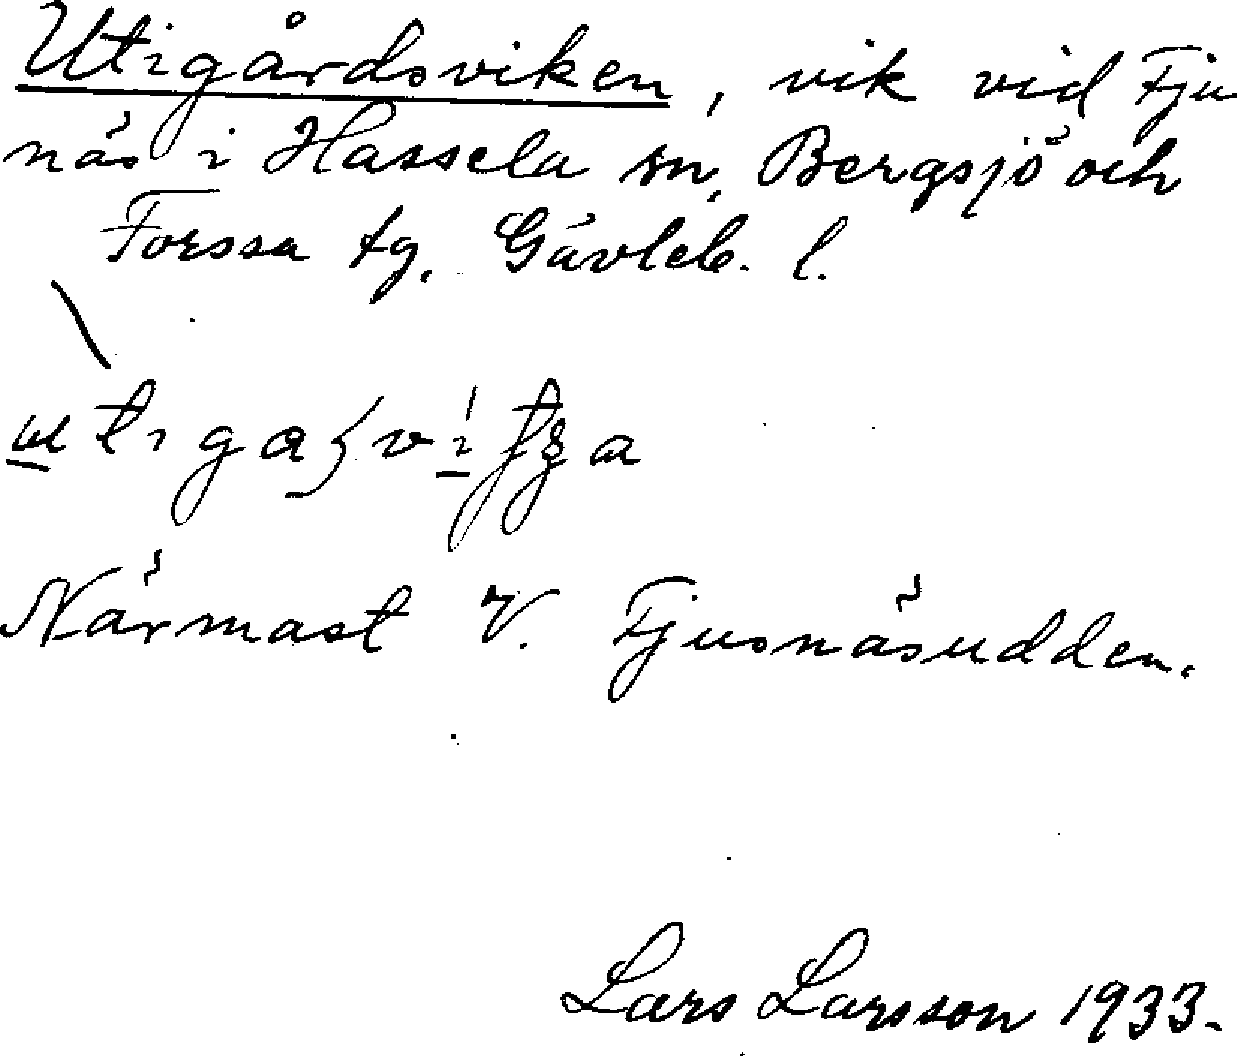 Utigårdsviken, vik vid Fju
näs i Hassela sn, Bergsjö och
Forssa tg, Gävleb. l.
Närmast V. Fjusnäsudden.
Lars Larsson 1933.